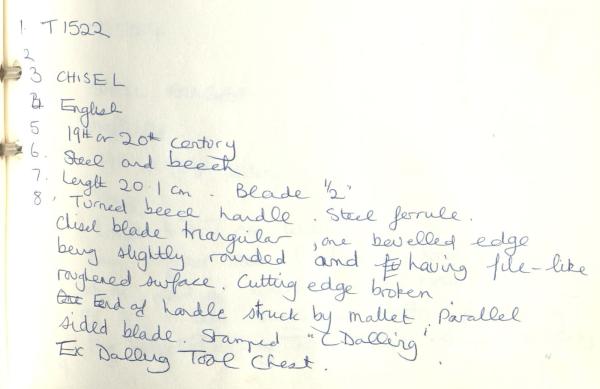 1. T1522
2
3 CHISEL
4 English
5 19th or 20th century
6. Steel and beech
7. Length 20.1 cm. Blade 1/2"
8. Turned beech handle. Steel ferrule.
Chisel blade triangular, one bevelled edge
being slightly rounded and having file-like
roughened surface. Cutting edge broken
End of handle struck by mallet. Parallel
sided blade. Stamped "C Dalling".
Ex Dalling Tool Chest.